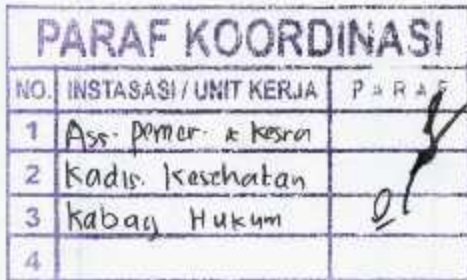 PARAF KOORDINASI
NO. INSTASASI / UNIT KERJA PARAF
1 Ass. pemer. & kesra
2 Kadis. Kesehatan
3 Kabag Hukum
4